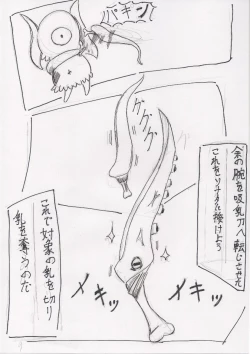 パキン
ググググ
余の腕を吸乳刀へ転じさせた
これをソナタに授けよう
メキッ
メキッ
これで対象の乳を切り
乳を奪うのだ